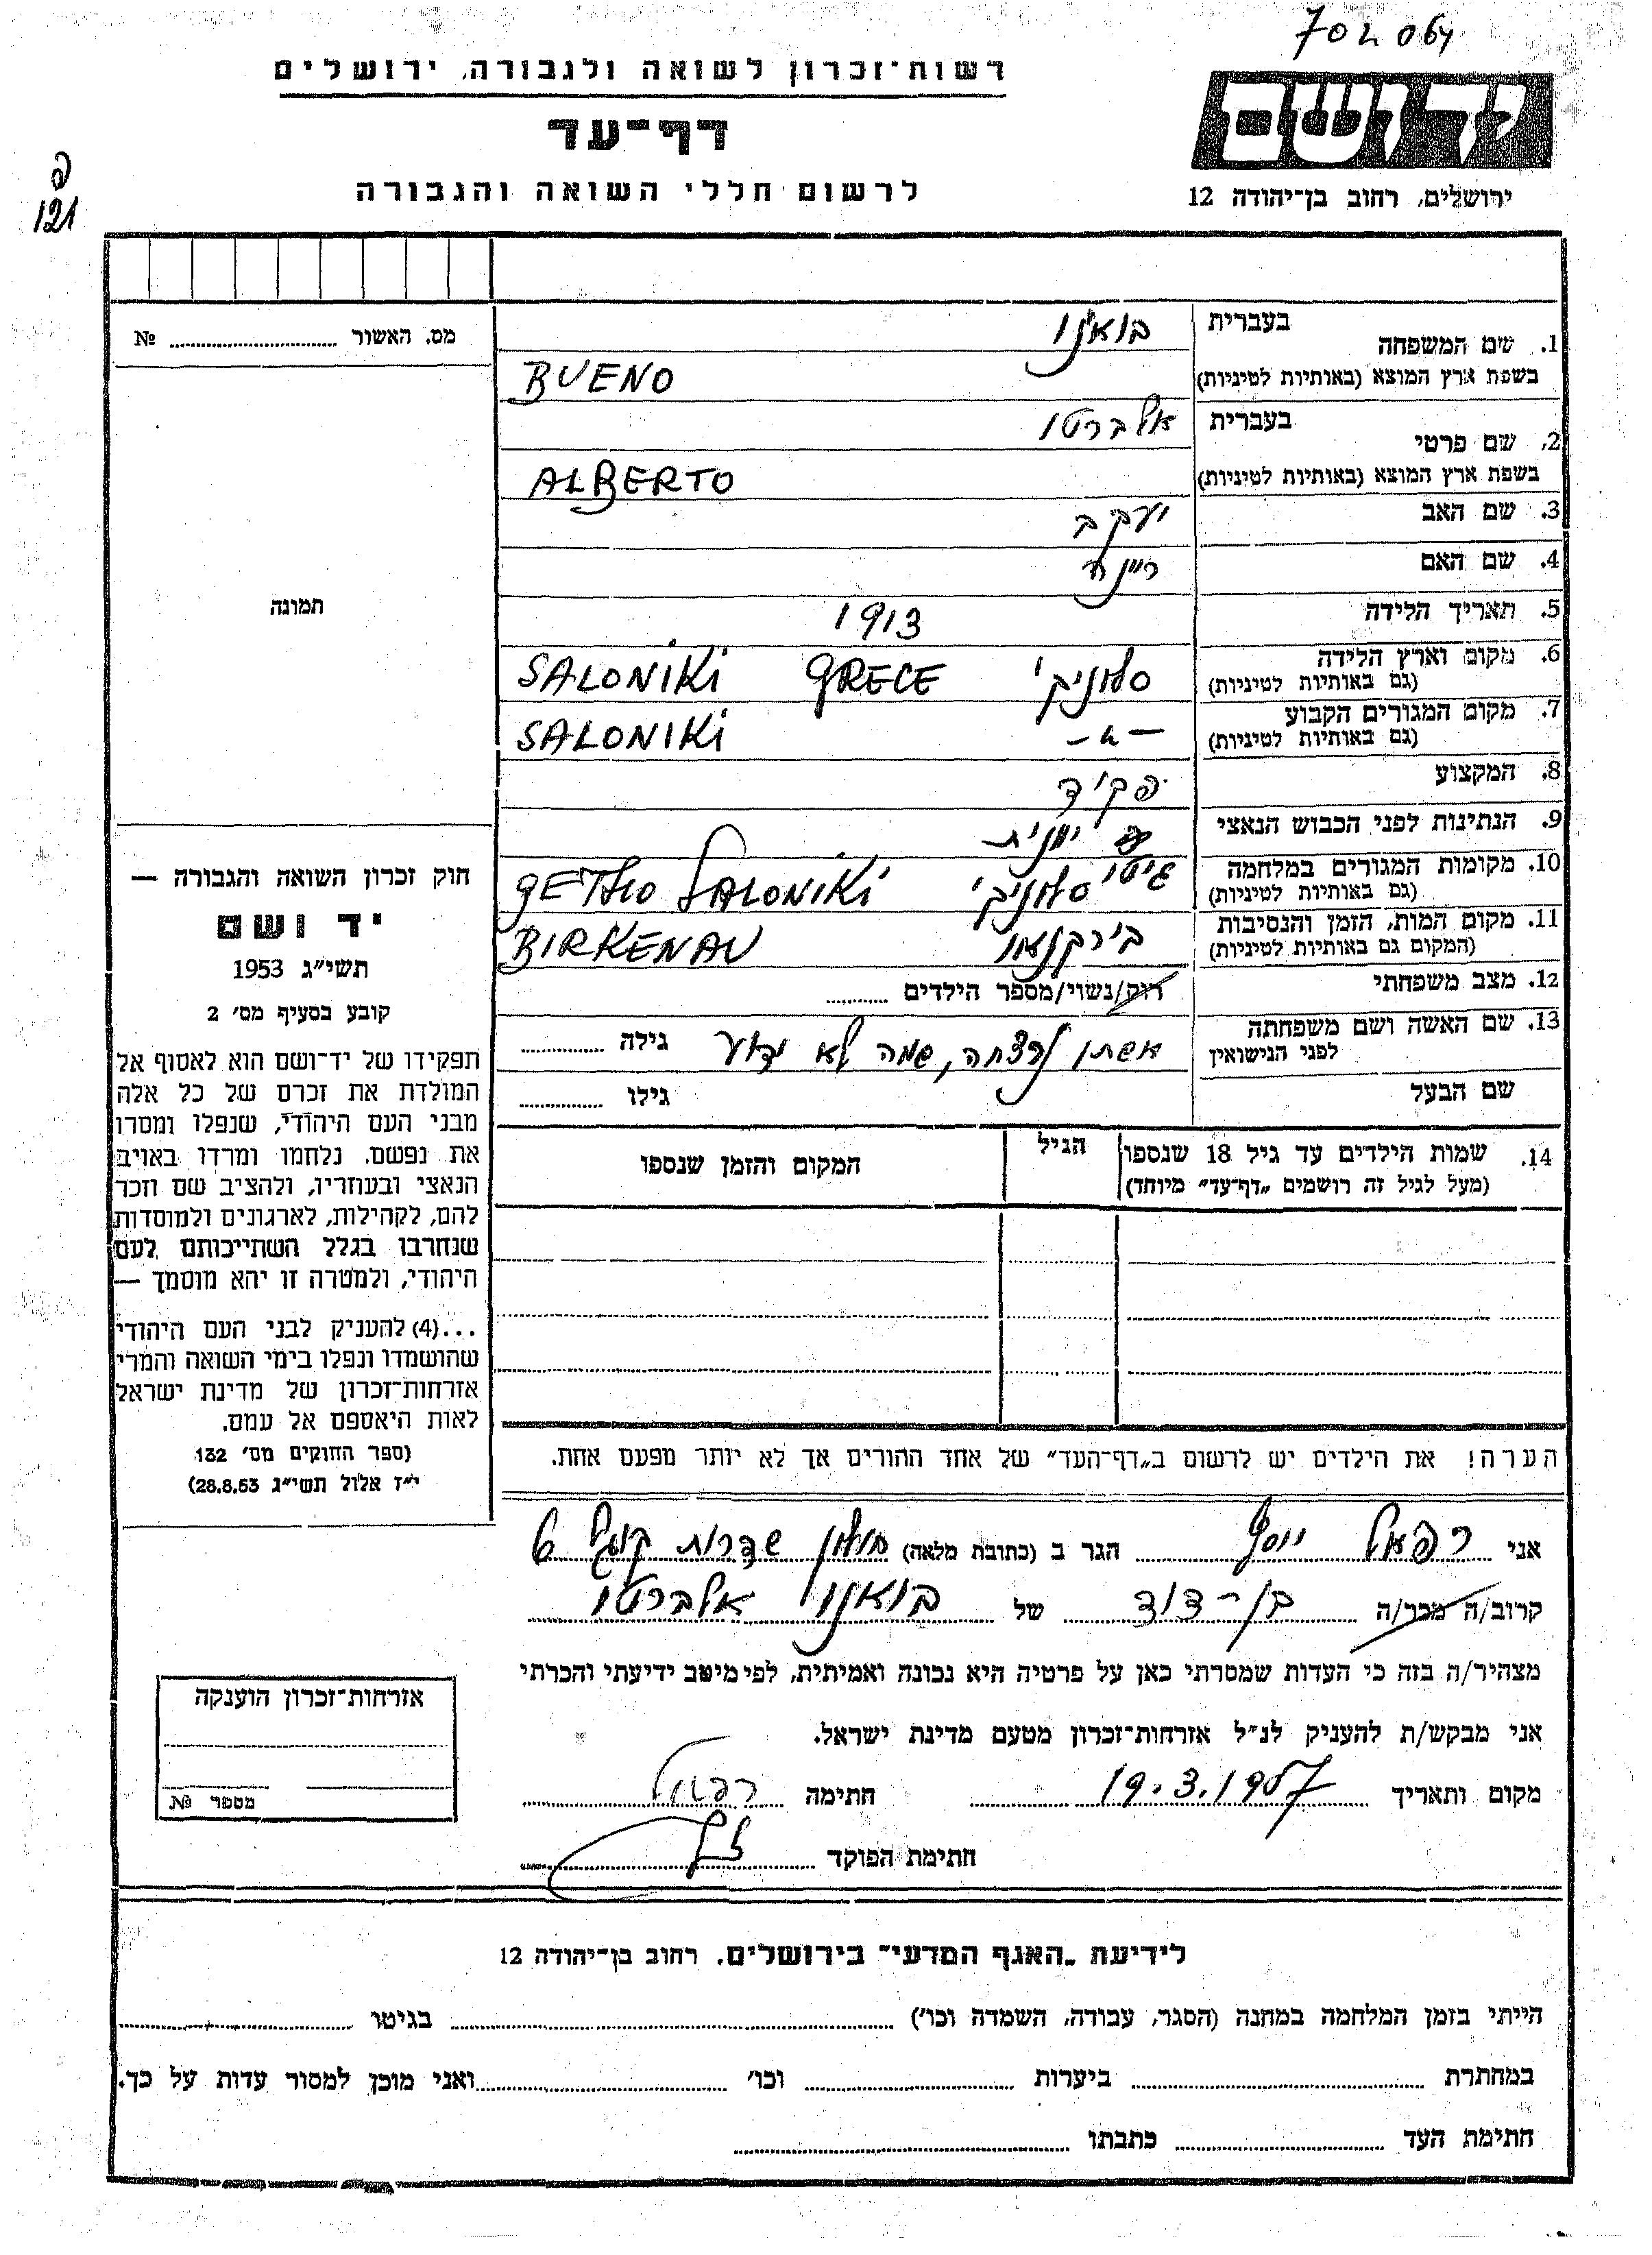 702 064
רשות־זכרון לשואה ולגבורה, ירושלים
יד ושם
דף־עד
לרשום חללי השואה והגבורה
ירושלים, רחוב בן־יהודה 12
121
מס. האשור № ..........
1. שם המשפחה
בעברית
בואנו
בשפת ארץ המוצא (באותיות לטיניות)
BUENO
2. שם פרטי
בעברית
אלברטו
בשפת ארץ המוצא (באותיות לטיניות)
ALBERTO
3. שם האב
יעקב
4. שם האם
ריינה
5. תאריך הלידה
1913
6. מקום וארץ הלידה
(גם באותיות לטיניות)
סלוניקי GRECE SALONIKI
7. מקום המגורים הקבוע
(גם באותיות לטיניות)
-"- SALONIKI
8. המקצוע
פקיד
9. הנתינות לפני הכבוש הנאצי
יוונית
10. מקומות המגורים במלחמה
(גם באותיות לטיניות)
גיטו סלוניקי GETHO SALONIKI
11. מקום המות, הזמן והנסיבות
(המקום גם באותיות לטיניות)
בירקנאו BIRKENAU
12. מצב משפחתי
רווק/נשוי/מספר הילדים ..........
13. שם האשה ושם משפחתה
לפני הנישואין
אשתו נרצחה, שמה לא ידוע גילה ..........
שם הבעל
גילו ..........
14. שמות הילדים עד גיל 18 שנספו
(מעל לגיל זה רושמים „דף־עד״ מיוחד)
הגיל
המקום והזמן שנספו
תמונה
חוק זכרון השואה והגבורה —
יד ושם
תשי״ג 1953
קובע בסעיף מס׳ 2
תפקידו של יד־ושם הוא לאסוף אל
המולדת את זכרם של כל אלה
מבני העם היהודי, שנפלו ומסרו
את נפשם, נלחמו ומרדו באויב
הנאצי ובעוזריו, ולהציב שם וזכר
להם, לקהילות, לארגונים ולמוסדות
שנחרבו בגלל השתייכותם לעם
היהודי, ולמטרה זו יהא מוסמך —
...(4) להעניק לבני העם היהודי
שהושמדו ונפלו בימי השואה והמרי
אזרחות־זכרון של מדינת ישראל
לאות היאספם אל עמם.
(ספר החוקים מס׳ 132
י״ז אלול תשי״ג 28.8.53)
הערה! את הילדים יש לרשום ב„דף־העד״ של אחד ההורים אך לא יותר מפעם אחת.
אני רפאל יוסף הגר ב (כתובת מלאה) חולון שדרות קוגל 6
קרוב/ה מכר/ה בן-דוד של בואנו אלברטו
מצהיר/ה בזה כי העדות שמסרתי כאן על פרטיה היא נכונה ואמיתית, לפי מיטב ידיעתי והכרתי
אני מבקש/ת להעניק לנ״ל אזרחות־זכרון מטעם מדינת ישראל.
מקום ותאריך 19.3.1957 חתימה רפאל
חתימת הפוקד
אזרחות־זכרון הוענקה
מספר №
לידיעת „האגף המדעי״ בירושלים, רחוב בן־יהודה 12
הייתי בזמן המלחמה במחנה (הסגר, עבודה, השמדה וכו׳) .......... בגיטו ..........
במחתרת .......... ביערות .......... וכו׳ .......... ואני מוכן למסור עדות על כך.
חתימת העד .......... כתבתו ..........